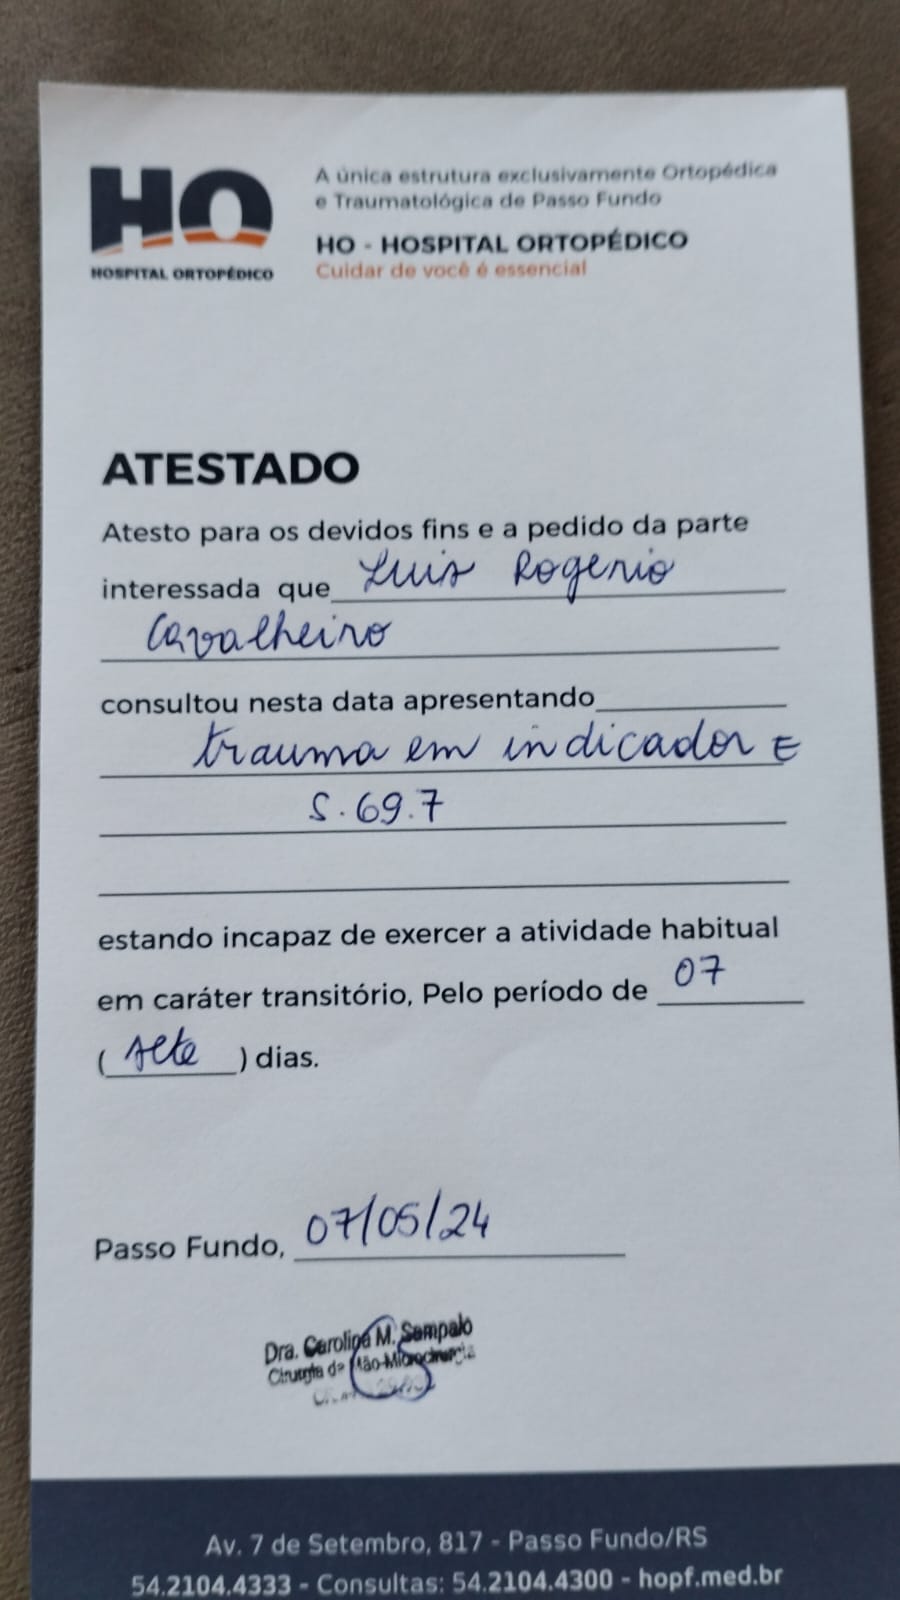 HO
HOSPITAL ORTOPÉDICO
A única estrutura exclusivamente Ortopédica
e Traumatológica de Passo Fundo
HO - HOSPITAL ORTOPÉDICO
Cuidar de você é essencial
ATESTADO
Atesto para os devidos fins e a pedido da parte
interessada que Luis Rogerio
Cavalheiro
consultou nesta data apresentando
trauma em indicador E
S.69.7
estando incapaz de exercer a atividade habitual
em caráter transitório, Pelo período de 07
(sete) dias.
Passo Fundo, 07/05/24
Dra. Carolina M. Sampaio
Cirurgia da Mão-Microcirurgia
Av. 7 de Setembro, 817 - Passo Fundo/RS
54.2104.4333 - Consultas: 54.2104.4300 - hopf.med.br